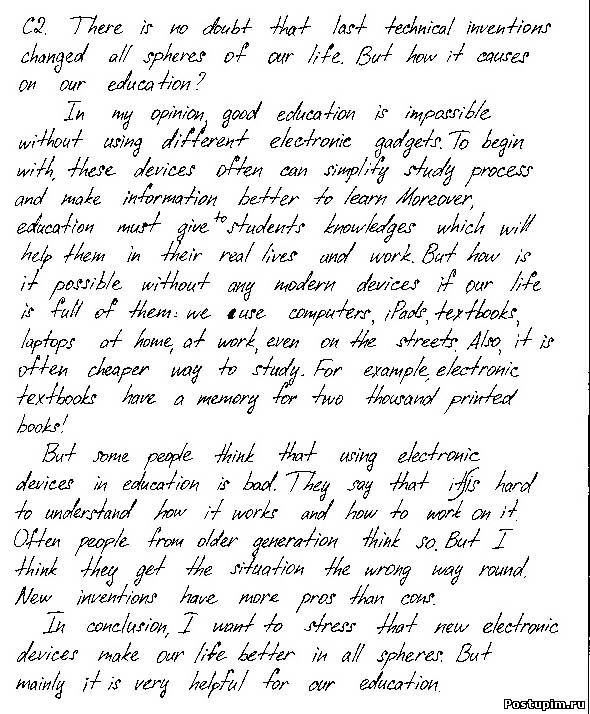 C2. There is no doubt that last technical inventions
changed all spheres of our life. But how it causes
on our education?
In my opinion, good education is impossible
without using different electronic gadgets. To begin
with, these devices often can simplify study process
and make information better to learn. Moreover,
education must give to students knowledges which will
help them in their real lives and work. But how is
it possible without any modern devices if our life
is full of them: we use computers, iPads, textbooks,
laptops at home, at work, even on the streets. Also, it is
often cheaper way to study. For example, electronic
textbooks have a memory for two thousand printed
books!
But some people think that using electronic
devices in education is bad. They say that it is hard
to understand how it works and how to work on it.
Often people from older generation think so. But I
think they get the situation the wrong way round.
New inventions have more pros than cons.
In conclusion, I want to stress that new electronic
devices make our life better in all spheres. But
mainly it is very helpful for our education.
Postupim.ru